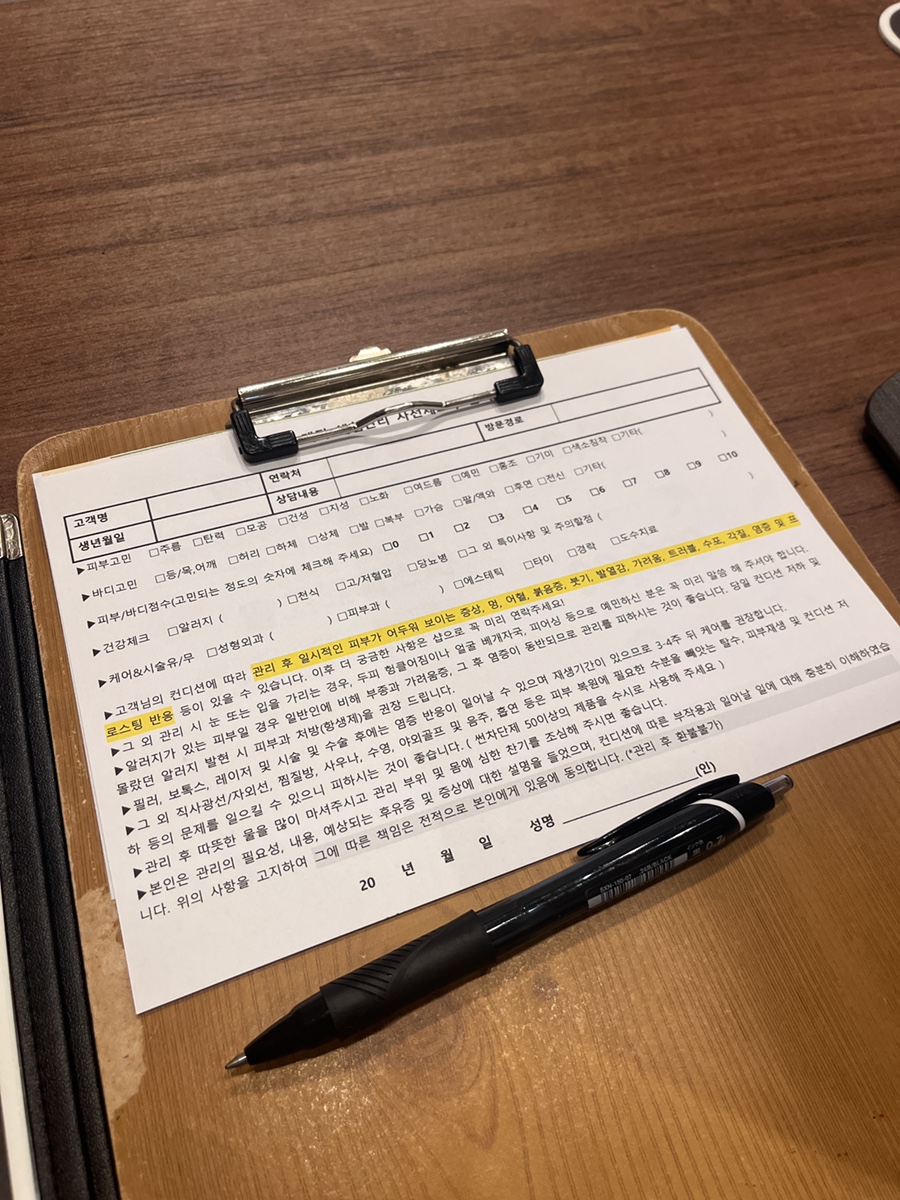 관리 사전
고객명 연락처 방문경로
생년월일 상담내용
▶피부고민 □주름 □탄력 □모공 □건성 □지성 □노화 □여드름 □예민 □홍조 □기미 □색소침착 □기타( )
▶바디고민 □등/목,어깨 □허리 □하체 □상체 □발 □복부 □가슴 □팔/액와 □후면 □전신 □기타( )
▶피부/바디점수(고민되는 정도의 숫자에 체크해 주세요) □0 □1 □2 □3 □4 □5 □6 □7 □8 □9 □10
▶건강체크 □알러지 ( ) □천식 □고/저혈압 □당뇨병 □그 외 특이사항 및 주의할점 ( )
▶케어&시술유/무 □성형외과 ( ) □피부과 ( ) □에스테틱 □타이 □경락 □도수치료
▶고객님의 컨디션에 따라 관리 후 일시적인 피부가 어두워 보이는 증상, 멍, 어혈, 붉음증, 붓기, 발열감, 가려움, 트러블, 수포, 각질, 염증 및 프
로스팅 반응 등이 있을 수 있습니다. 이후 더 궁금한 사항은 샵으로 꼭 미리 연락주세요!
▶그 외 관리 시 눈 또는 입을 가리는 경우, 두피 헝클어짐이나 얼굴 베개자국, 피어싱 등으로 예민하신 분은 꼭 미리 말씀 해 주셔야 합니다.
▶알러지가 있는 피부일 경우 일반인에 비해 부종과 가려움증, 그 후 염증이 동반되므로 관리를 피하시는 것이 좋습니다. 당일 컨디션 저하 및
몰랐던 알러지 발현 시 피부과 처방(항생제)을 권장 드립니다.
▶필러, 보톡스, 레이저 및 시술 및 수술 후에는 염증 반응이 일어날 수 있으며 재생기간이 있으므로 3-4주 뒤 케어를 권장합니다.
▶그 외 직사광선/자외선, 찜질방, 사우나, 수영, 야외골프 및 음주, 흡연 등은 피부 복원에 필요한 수분을 빼앗는 탈수, 피부재생 및 컨디션 저
하 등의 문제를 일으킬 수 있으니 피하시는 것이 좋습니다. ( 썬차단제 50이상의 제품을 수시로 사용해 주세요 )
▶관리 후 따뜻한 물을 많이 마셔주시고 관리 부위 및 몸에 심한 찬기를 조심해 주시면 좋습니다.
▶본인은 관리의 필요성, 내용, 예상되는 후유증 및 증상에 대한 설명을 들었으며, 컨디션에 따른 부작용과 일어날 일에 대해 충분히 이해하였습
니다. 위의 사항을 고지하여 그에 따른 책임은 전적으로 본인에게 있음에 동의합니다. (*관리 후 환불불가)
20 년 월 일 성명 (인)
SXN-150-07 24B/BLACK
0.7